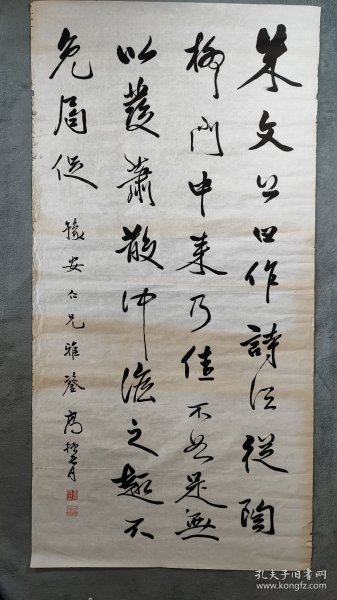 朱文公曰作詩須從陶
柳門中來乃佳不如是無
以發蕭散沖澹之趣不
免局促
安仁兄雅鑒 高振霄
孔夫子旧书网
www.kongfz.com